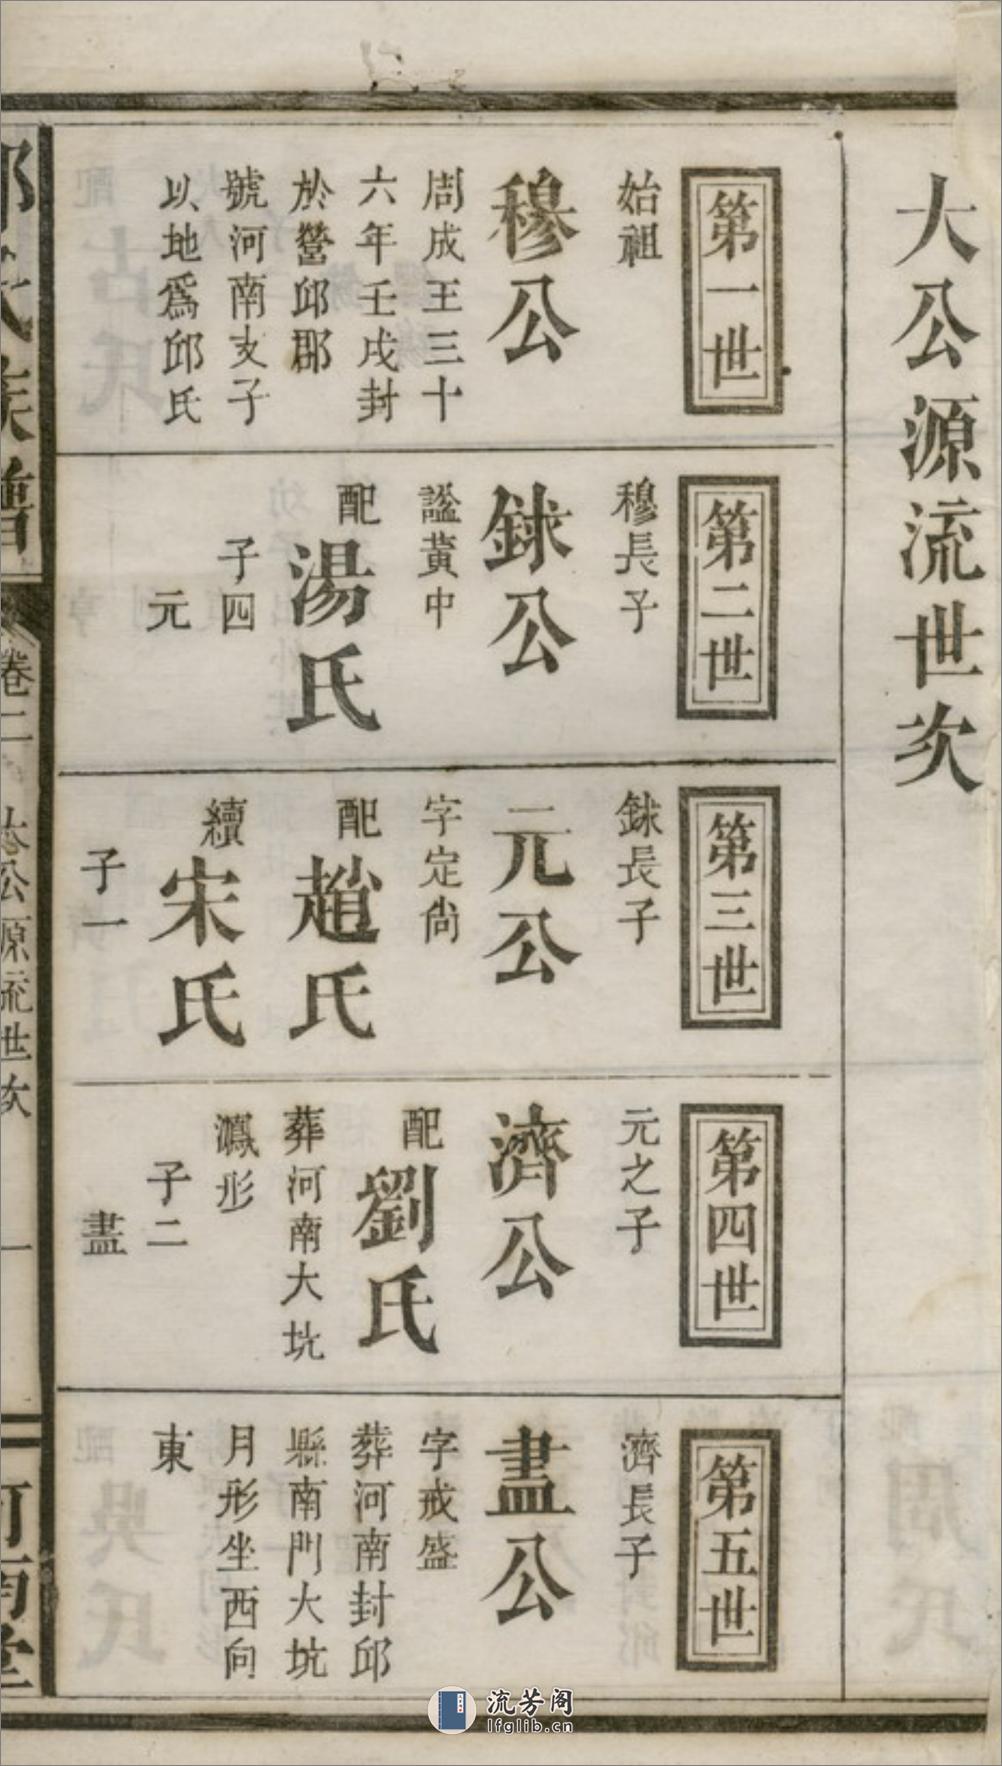 大公源流世次
第一世
始祖
穆公
周成王三十
六年壬戌封
於營邱郡
號河南支子
以地爲邱氏
第二世
穆長子
銶公
謚黃中
配湯氏
子四
元
第三世
銶長子
元公
字定尙
配趙氏
續宋氏
子一
第四世
元之子
濟公
配劉氏
葬河南大坑
鳳形
子二
晝
第五世
濟長子
晝公
字戒盛
葬河南封邱
縣南門大坑
月形坐西向
東
邱氏族譜
卷二
大公源流世次
一
河南堂
流芳阁
lfglib.cn